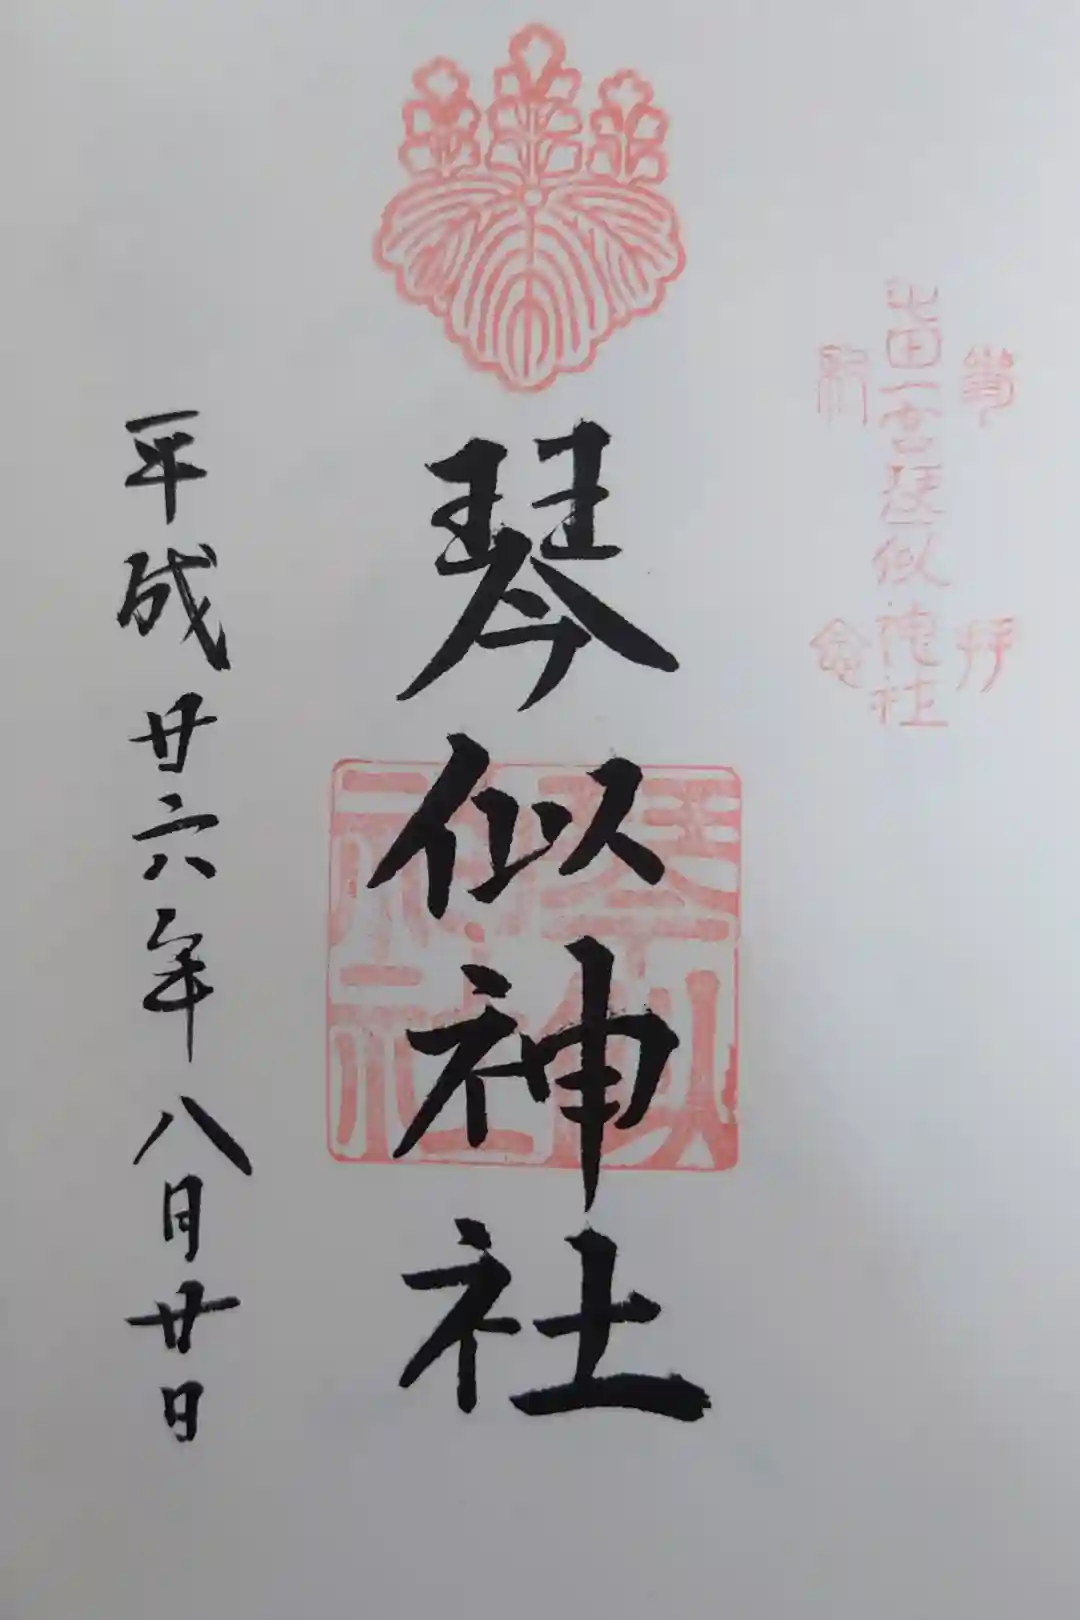 參拝
屯田一宮琴似神社
記念
琴似神社
琴似
神社
平成廿六年八月廿日